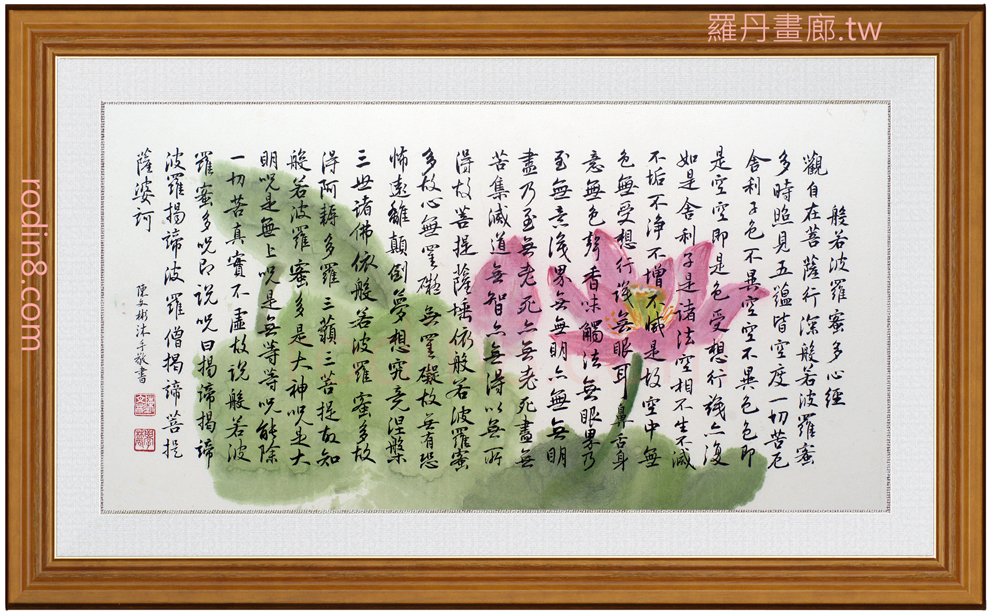 羅丹畫廊.tw
般若波羅蜜多心經
觀自在菩薩行深般若波羅蜜
多時照見五蘊皆空度一切苦厄
舍利子色不異空空不異色色即
是空空即是色受想行識亦復
如是舍利子是諸法空相不生不滅
不垢不淨不增不減是故空中無
色無受想行識無眼耳鼻舌身
意無色聲香味觸法無眼界乃
至無意識界無無明亦無無明
盡乃至無老死亦無老死盡無
苦集滅道無智亦無得以無所
得故菩提薩埵依般若波羅蜜
多故心無罣礙無罣礙故無有恐
怖遠離顛倒夢想究竟涅槃
三世諸佛依般若波羅蜜多故
得阿耨多羅三藐三菩提故知
般若波羅蜜多是大神呪是大
明呪是無上呪是無等等呪能除
一切苦真實不虛故說般若波
羅蜜多呪即說呪曰揭諦揭諦
波羅揭諦波羅僧揭諦菩提
薩婆訶
陳文彬沐手敬書
rodin8.com